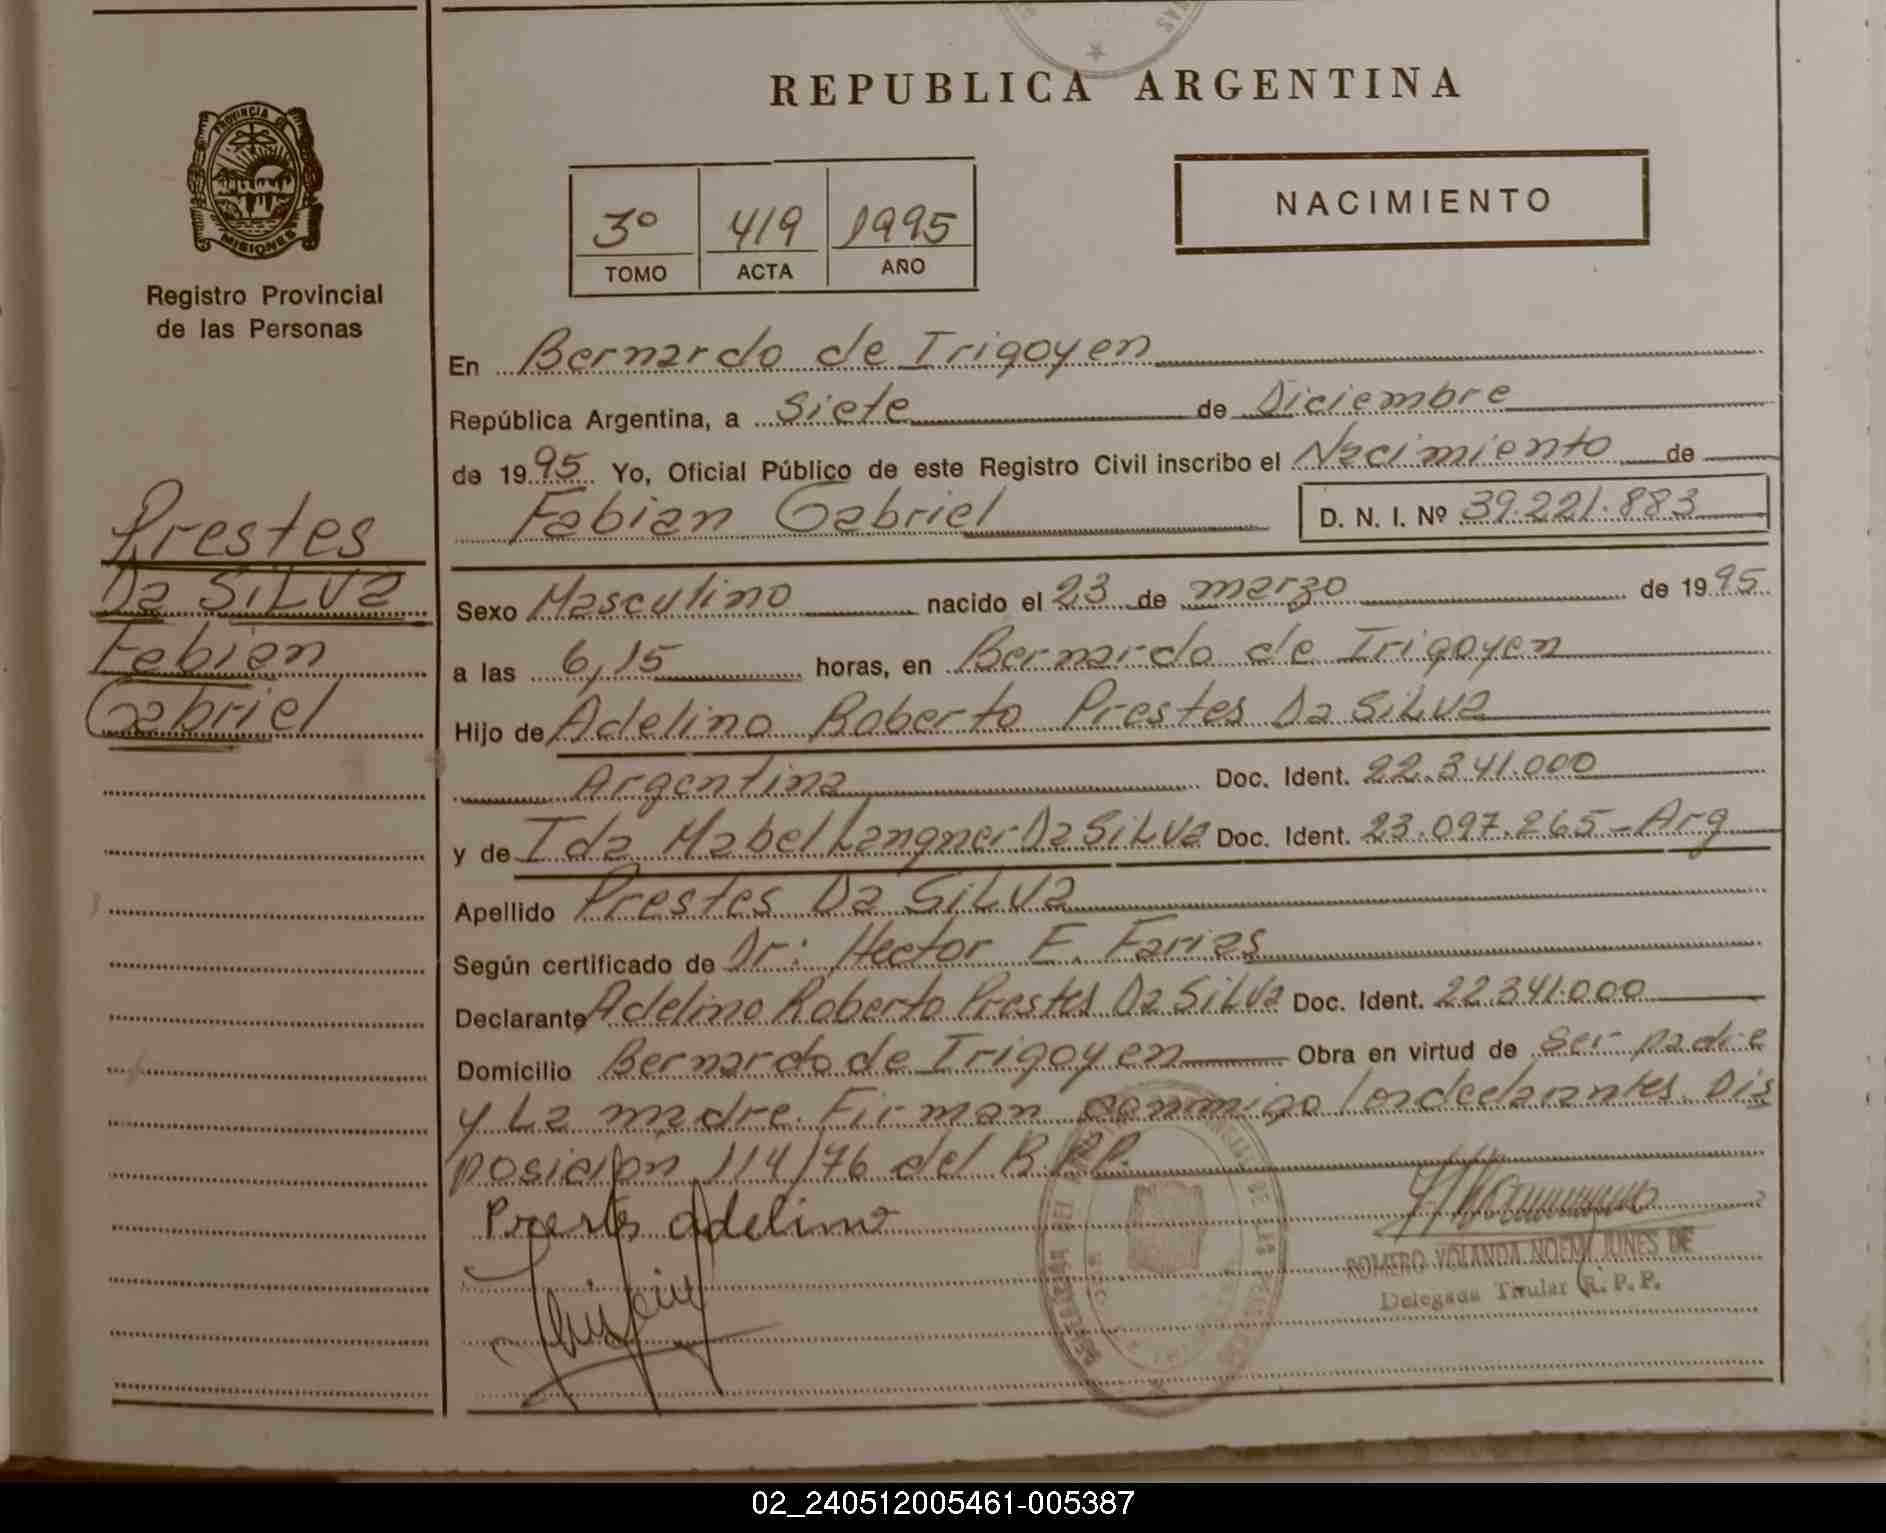 REPUBLICA ARGENTINA
PROVINCIA DE
MISIONES
Registro Provincial
de las Personas
3º 419 1995
TOMO ACTA AÑO
NACIMIENTO
Prestes
Da SiLVa
Fabian
Gabriel
En Bernardo de Irigoyen
República Argentina, a Siete de Diciembre
de 1995 Yo, Oficial Público de este Registro Civil inscribo el Nacimiento de
Fabian Gabriel D. N. I. Nº 39.221.883
Sexo Masculino nacido el 23 de marzo de 1995
a las 6,15 horas, en Bernardo de Irigoyen
Hijo de Adelino Roberto Prestes Da SiLVa
Argentina Doc. Ident. 22.341.000
y de Ida Mabel Langner Da SiLVa Doc. Ident. 23.097.265-Arg
Apellido Prestes Da SiLVa
Según certificado de Dr: Hector E. Farias
Declarante Adelino Roberto Prestes Da SiLVa Doc. Ident. 22.341.000
Domicilio Bernardo de Irigoyen Obra en virtud de ser padre
y La madre. Firman conmigo los declarantes. Dis
posicion 114/76 del R.P.P.
Prestes adelino
ROMERO YOLANDA NOEMI JUNES DE
Delegada Titular R. P. P.
02_240512005461-005387